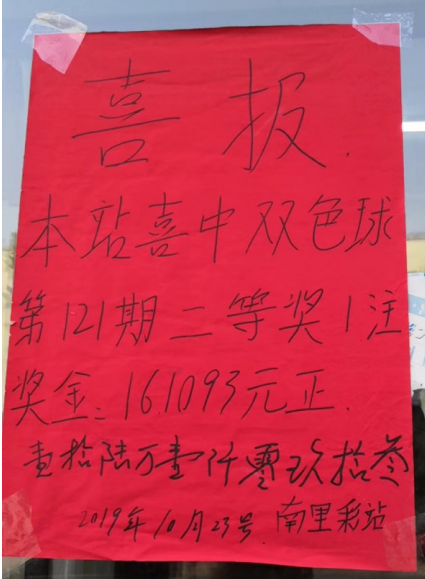 喜报.
本站喜中双色球
第121期二等奖1注
奖金:161093元正.
壹拾陆万壹仟零玖拾叁
2019年10月23号.南里彩站